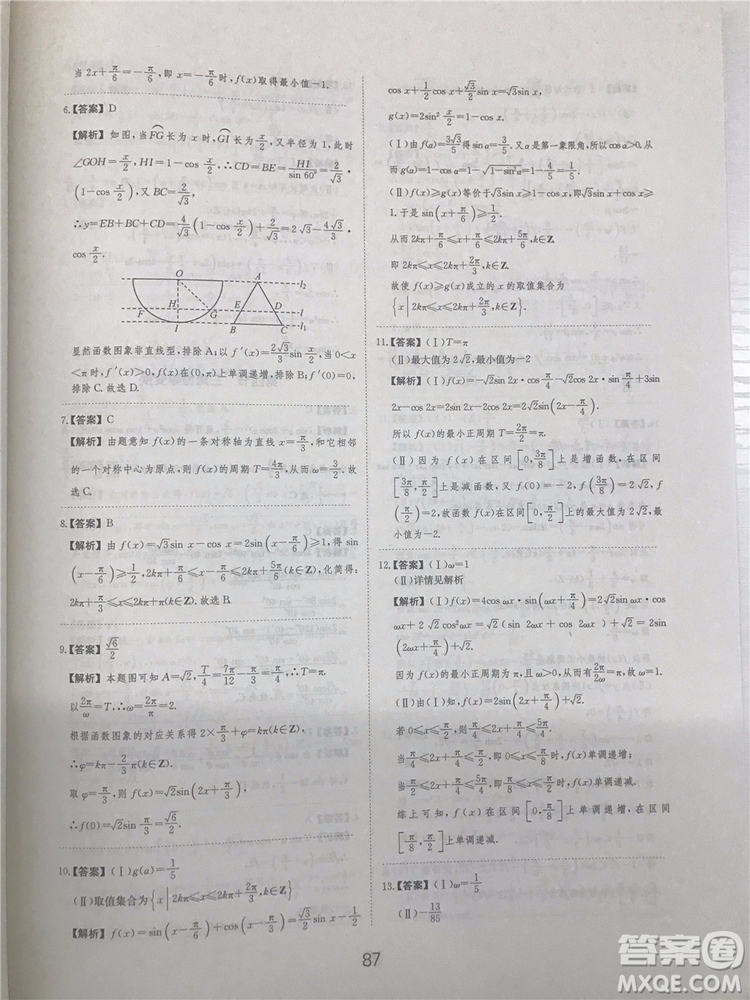 当 2x+π/6=-π/6,即 x=-π/6 时,f(x)取得最小值-1.
6.【答案】D
【解析】如图,当 FG 长为 x 时,GI 长为 x/2,又半径为 1,此时
∠GOH=x/2,HI=1-cos x/2,∴CD=BE=HI/sin 60°=2/√3
(1-cos x/2),又 BC=2/√3,
∴y=EB+BC+CD=4/√3(1-cos x/2)+2/√3=2√3-4√3/3
cos x/2.
O A l₁
F H G E D l
I B C l₂
显然函数图象非直线型,排除 A;以 f′(x)=2√3/3 sin x/2,当 0<x
<π 时,f′(x)>0,f(x)在定义域上单调递增,排除 B;f(0)>0,
排除 C.故选 D.
7.【答案】C
【解析】由题意知 f(x)的一条对称轴为直线 x=π/3,和它相邻
的一个对称中心为原点,则 f(x)的周期 T=4π/3,从而 ω=3/2.故
选 C.
8.【答案】B
【解析】由 f(x)=√3sin x-cos x=2sin(x-π/6)≥1,得 sin
(x-π/6)≥1/2,则 π/6+2kπ≤x-π/6≤5π/6+2kπ(k∈Z),化简得:
2kπ+π/3≤x≤π+2kπ(k∈Z).故选 B.
9.【答案】√6/2
【解析】本题图可知 A=√2,T/4=7π/12-π/3=π/4,∴T=π.
以 2π/ω=T,∴ω=2.
根据函数图象的对应关系得 2×π/3+φ=kπ(k∈Z),
∴φ=kπ-2π/3(k∈Z).
取 φ=π/3,则 f(x)=√2sin(2x+π/3),
∴f(0)=√2sin π/3=√6/2.
10.【答案】(Ⅰ)g(α)=1/5
(Ⅱ)取值集合为{x|2kπ≤x≤2kπ+2π/3,k∈Z}
【解析】f(x)=sin(x-π/6)+cos(x-π/3)=√3/2 sin x-1/2
cos x+1/2cos x+√3/2sin x=√3sin x,
g(x)=2sin² x/2=1-cos x,
(Ⅰ)由 f(α)=3√3/5 得 sin α=3/5.又 α 是第一象限角,所以cos α>0.
从而 g(α)=1-cos α=1-√1-sin²α=1-4/5=1/5.
(Ⅱ)f(x)≥g(x)等价于√3sin x≥1-cos x,即√3sin x+cos x≥
1.于是 sin(x+π/6)≥1/2.
从而 2kπ+π/6≤x+π/6≤2kπ+5π/6,k∈Z,
即 2kπ≤x≤2kπ+2π/3,k∈Z.
故使 f(x)≥g(x)成立的 x 的取值集合为
{x|2kπ≤x≤2kπ+2π/3,k∈Z}.
11.【答案】(Ⅰ)T=π
(Ⅱ)最大值为 2√2,最小值为-2
【解析】(Ⅰ)f(x)=-√2sin 2x·cos π/4-√2cos 2x·sin π/4+3sin
2x-cos 2x=2sin 2x-2cos 2x=2√2sin(2x-π/4).
所以 f(x)的最小正周期 T=2π/2=π.
(Ⅱ)因为 f(x)在区间[0,3π/8]上是增函数,在区间
[3π/8,π/2]上是减函数,又 f(0)=-2,f(3π/8)=2√2,f
(π/2)=2,故函数 f(x)在区间[0,π/2]上的最大值为 2√2,最
小值为-2.
12.【答案】(Ⅰ)ω=1
(Ⅱ)详情见解析
【解析】(Ⅰ)f(x)=4cos ωx·sin(ωx+π/4)=2√2sin ωx·cos
ωx+2√2cos²ωx=√2(sin 2ωx+cos 2ωx)+√2=2sin
(2ωx+π/4)+√2.
因为 f(x)的最小正周期为 π,且 ω>0,从而有 2π/2ω=π,故 ω=1.
(Ⅱ)由(Ⅰ)知,f(x)=2sin(2x+π/4)+√2.
若 0≤x≤π/2,则 π/4≤2x+π/4≤5π/4.
当 π/4≤2x+π/4≤π/2,即 0≤x≤π/8 时,f(x)单调递增;
当 π/2≤2x+π/4≤5π/4,即 π/8≤x≤π/2 时,f(x)单调递减.
综上可知,f(x)在区间[0,π/8]上单调递增,在区间
[π/8,π/2]上单调递减.
13.【答案】(Ⅰ)ω=1/5
(Ⅱ)-13/85
87
答案圈
MXQE.COM